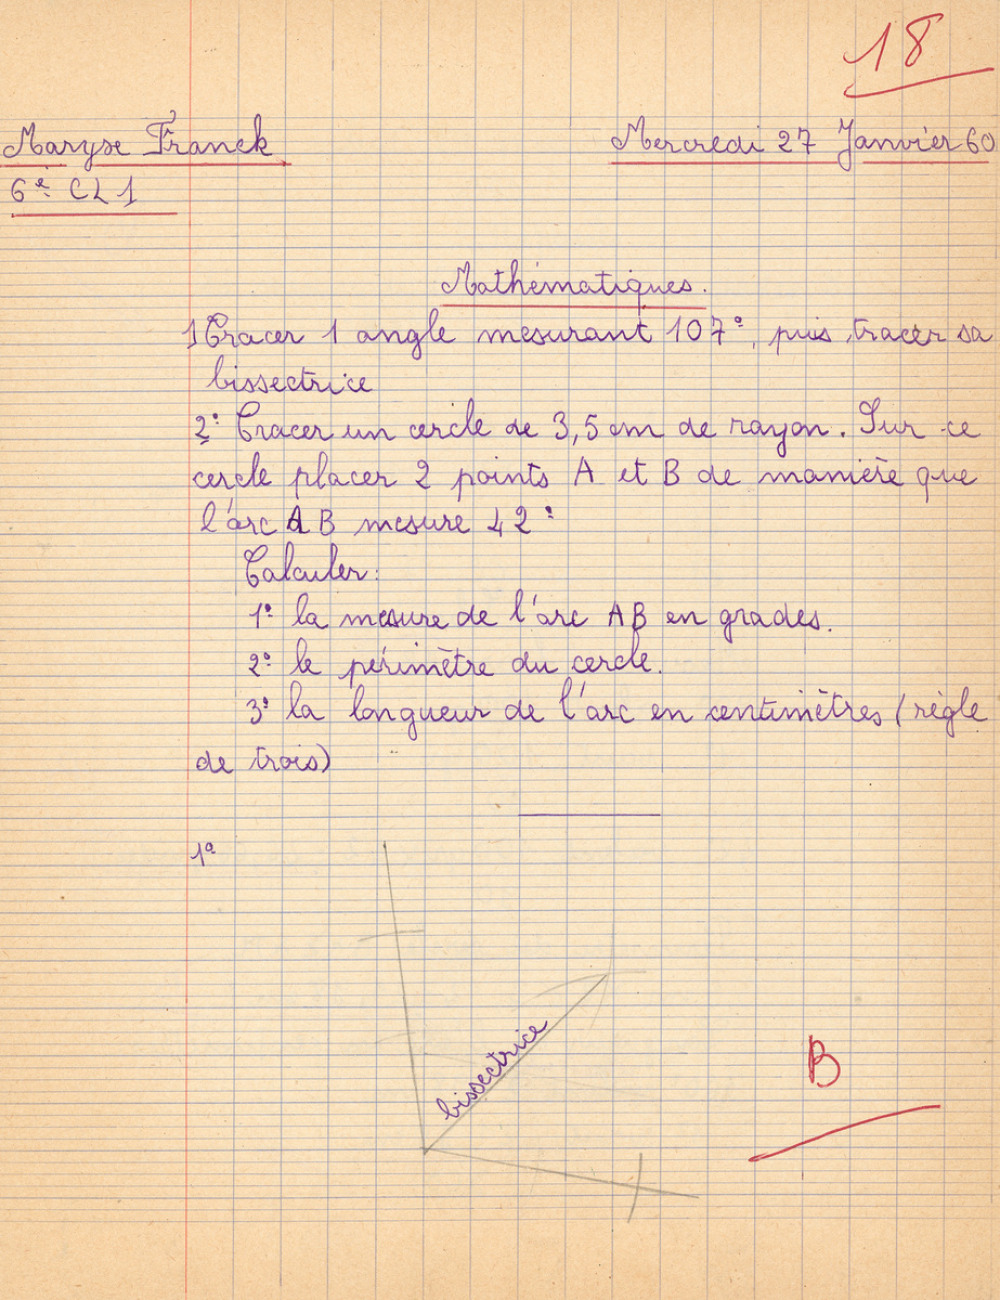 18
Maryse Franck Mercredi 27 Janvier 60
6e CL 1
Mathématiques.
1 Tracer 1 angle mesurant 107°, puis tracer sa
bissectrice
2° Tracer un cercle de 3,5 cm de rayon. Sur ce
cercle placer 2 points A et B de manière que
l'arc AB mesure 42°
Calculer:
1° la mesure de l'arc AB en grades.
2° le périmètre du cercle.
3° la longueur de l'arc en centimètres (règle
de trois)
1°
bissectrice
B